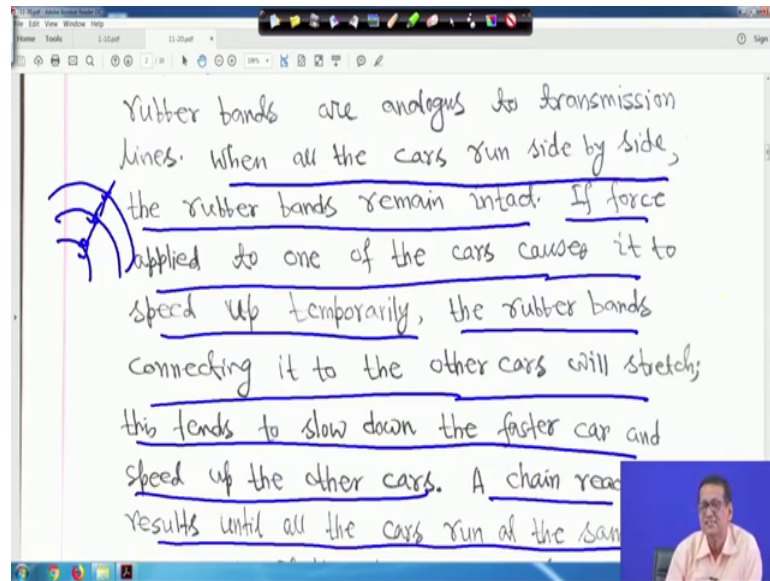 11-20.pdf - Adobe Acrobat Reader DC
File Edit View Window Help
Home Tools 1-10.pdf 11-20.pdf × Sign
rubber bands are analogus to transmission
lines. When all the cars run side by side,
the rubber bands remain intact. If force
applied to one of the cars causes it to
speed up temporarily, the rubber bands
connecting it to the other cars will stretch;
this tends to slow down the faster car and
speed up the other cars. A chain reac
results until all the cars run at the sam